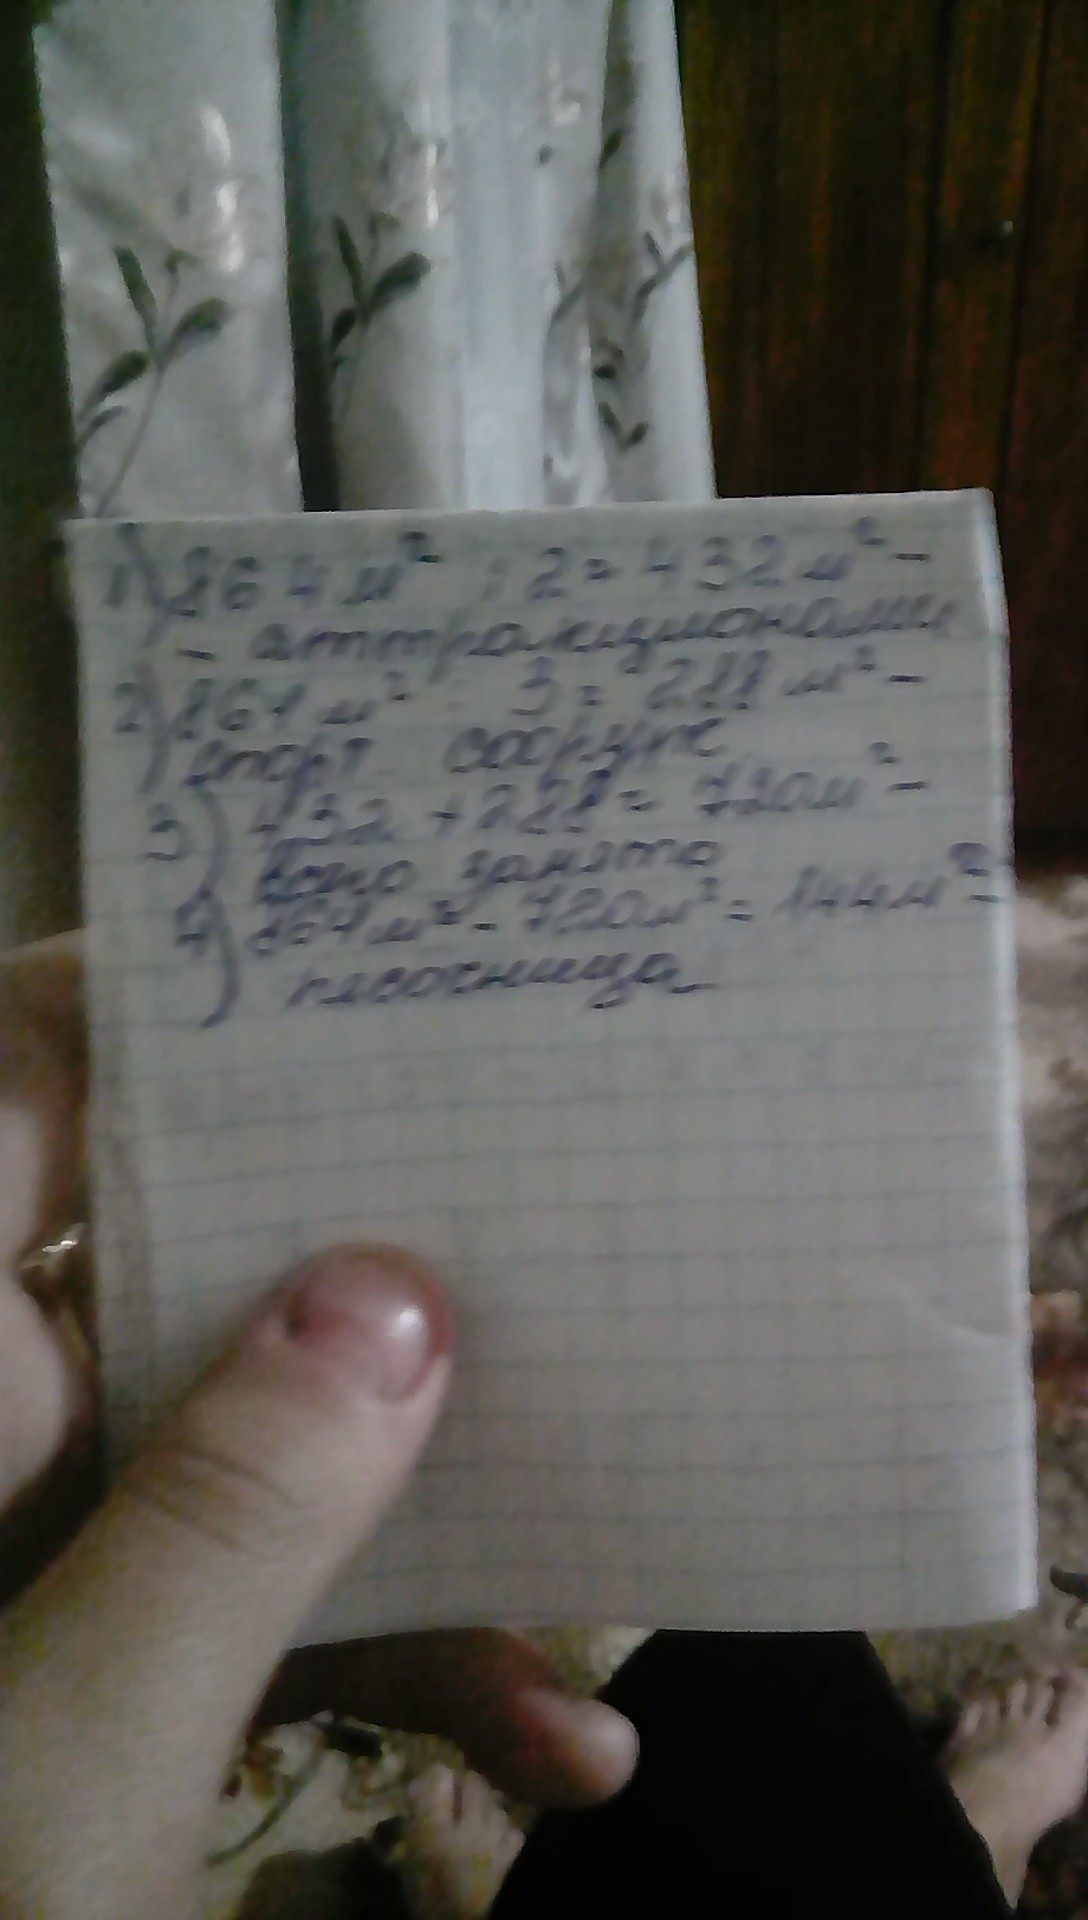 1) 864 м² : 2 = 432 м² -
- аттракционами
2) 864 м² : 3 = 288 м² -
спорт. сооруж
3) 432 + 288 = 720 м² -
всего занято
4) 864 м² - 720 м² = 144 м² -
песочница